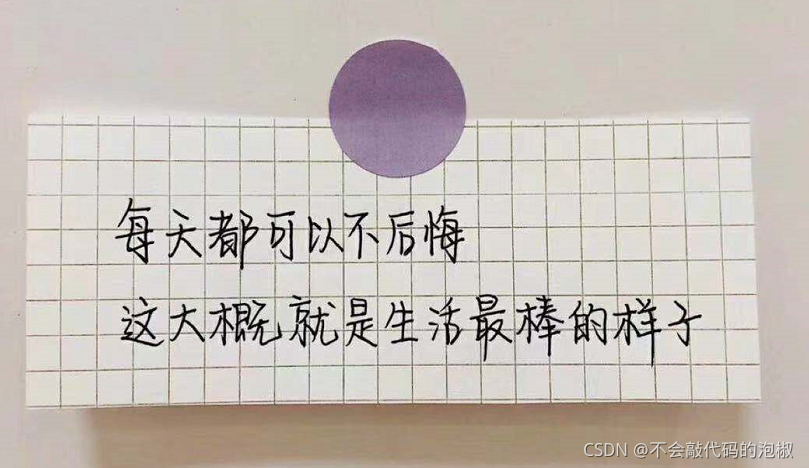 每天都可以不后悔
这大概就是生活最棒的样子
CSDN @不会敲代码的泡椒